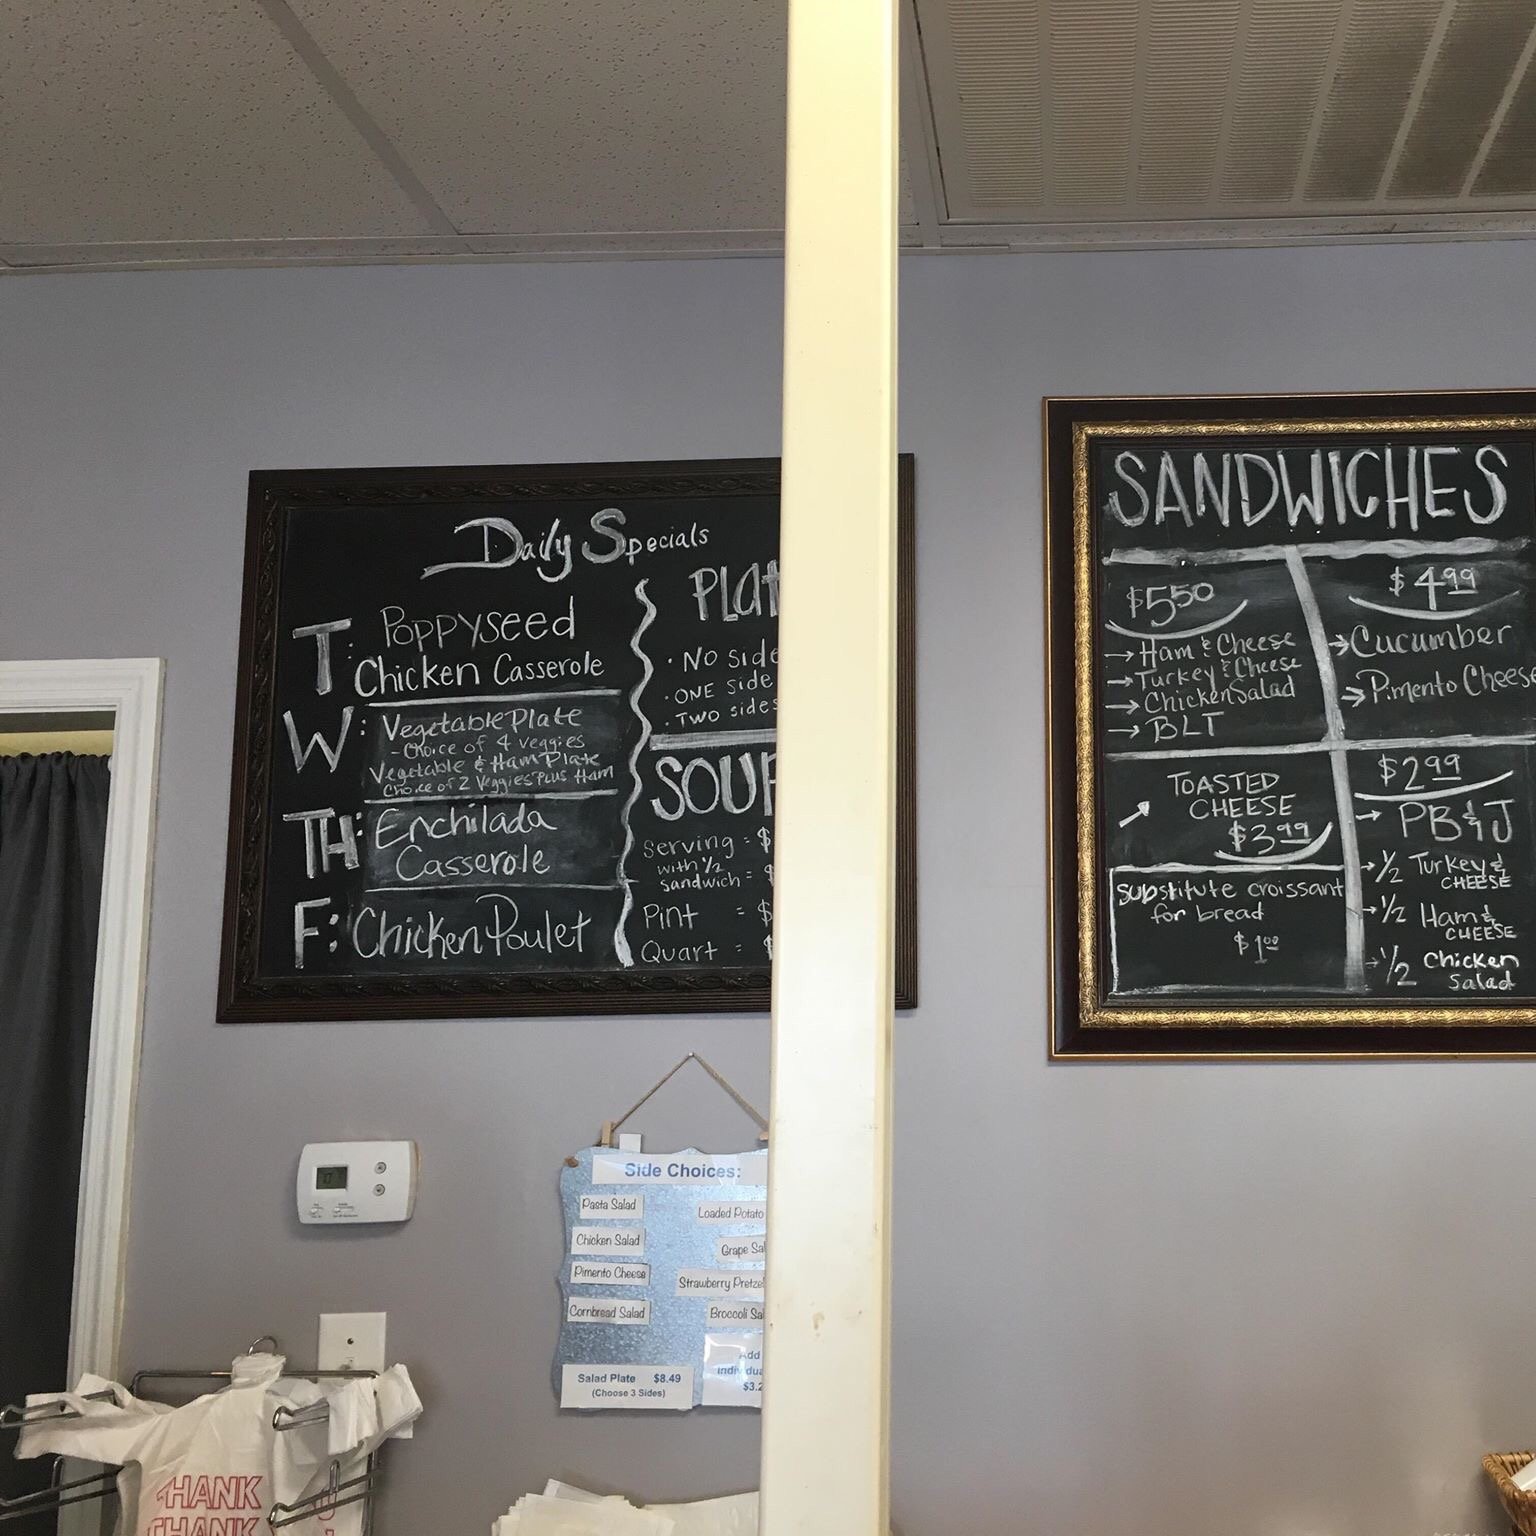 Daily Specials
T: Poppyseed
Chicken Casserole
W: Vegetable Plate
-Choice of 4 veggies
Vegetable & Ham Plate
Choice of 2 Veggies Plus Ham
TH: Enchilada
Casserole
F: Chicken Poulet
· No side
· ONE side
· TWO sides
Serving = $
with 1/2
sandwich =
Pint = $
Quart = $
SANDWICHES
$5.50
→ Ham & Cheese
→ Turkey & Cheese
→ Chicken Salad
→ BLT
$4.99
→ Cucumber
→ Pimento Cheese
TOASTED
CHEESE
$3.99
Substitute croissant
for bread
$1.00
$2.99
→ PB & J
→ 1/2 Turkey &
CHEESE
→ 1/2 Ham &
CHEESE
→ 1/2 Chicken
Salad
Side Choices:
Pasta Salad
Chicken Salad
Pimento Cheese
Cornbread Salad
Loaded Potato
Grape
Strawberry
Broccoli
Salad Plate $8.49
(Choose 3 Sides)
Add
THANK
THANK